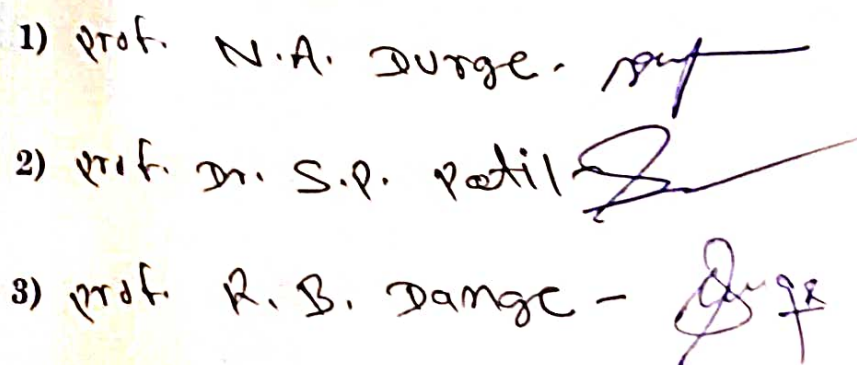 1) Prof. N.A. Durge.
2) Prof. Dr. S.P. Patil
3) Prof. R. B. Dange -